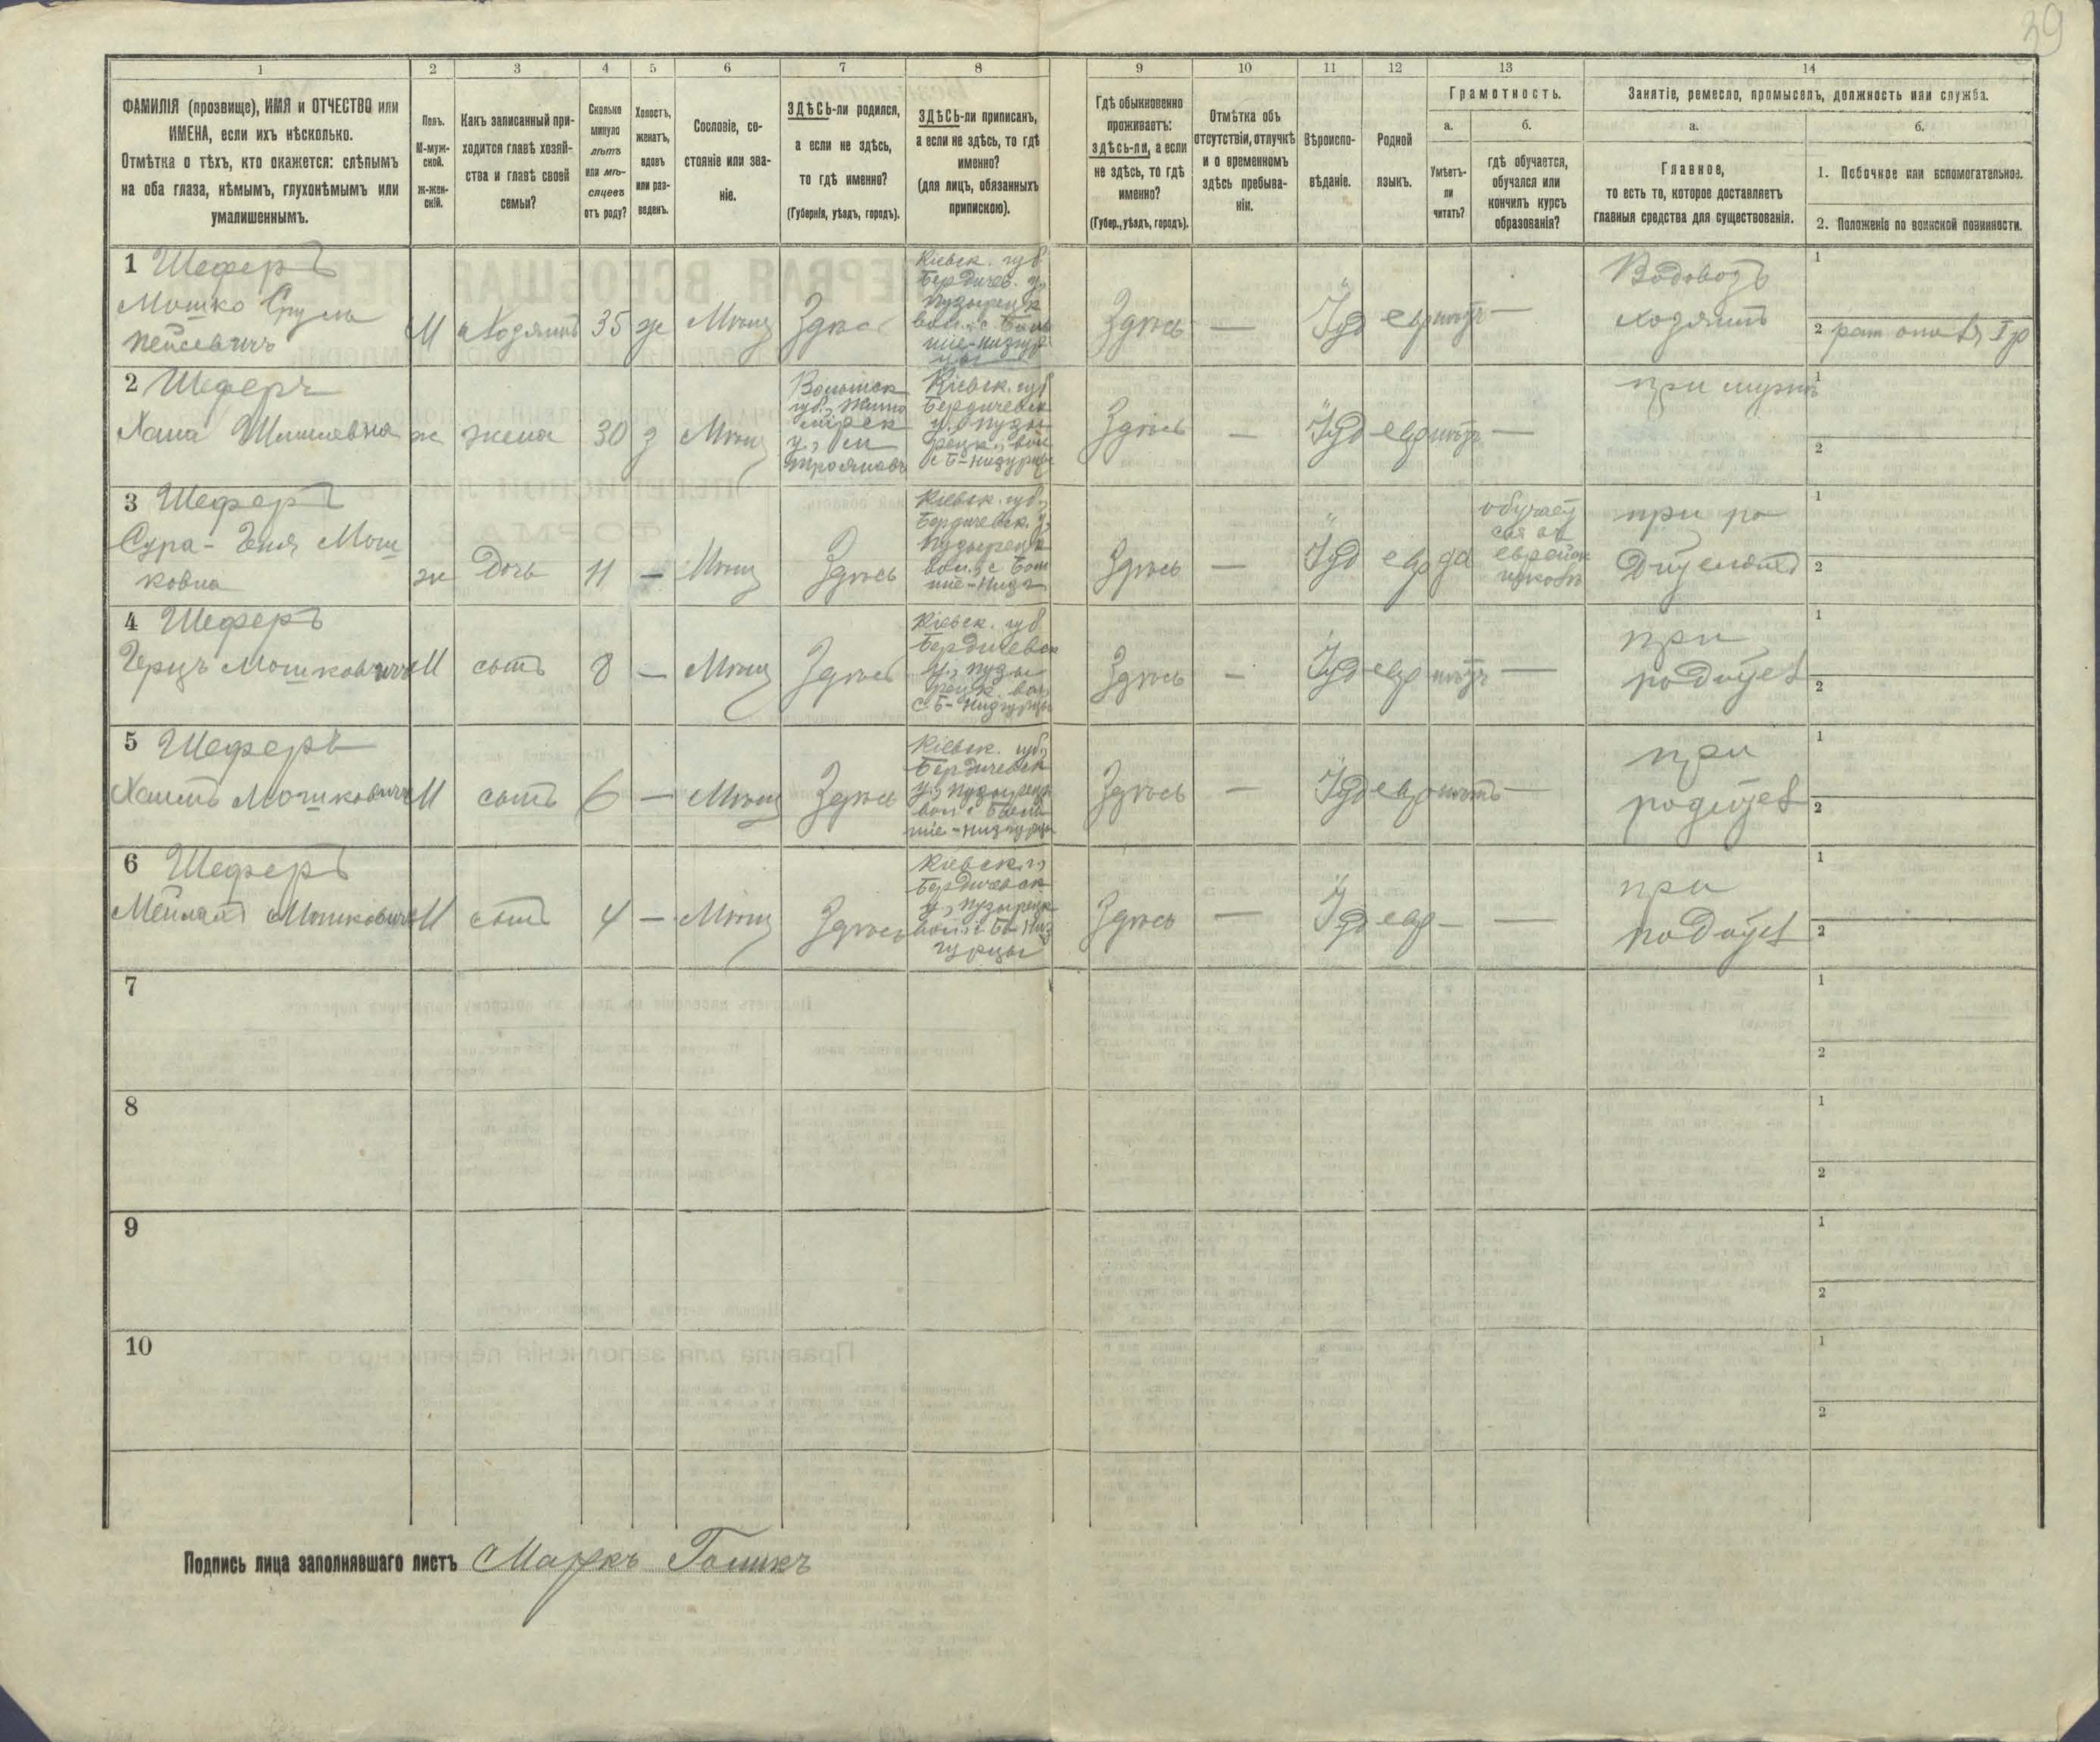 39
1
2
3
4
5
6
7
8
9
10
11
12
13
14
ФАМИЛІЯ (прозвище), ИМЯ и ОТЧЕСТВО или
ИМЕНА, если ихъ нѣсколько.
Отмѣтка о тѣхъ, кто окажется: слѣпымъ
на оба глаза, нѣмымъ, глухонѣмымъ или
умалишеннымъ.
Полъ.
М-муж-
ской.
ж-жен-
скій.
Какъ записанный при-
ходится главѣ хозяй-
ства и главѣ своей
семьи?
Сколько
минуло
лѣтъ
или мѣ-
сяцевъ
отъ роду?
Холостъ,
женатъ,
вдовъ
или раз-
веденъ.
Сословіе, со-
стояніе или зва-
ніе.
ЗДѢСЬ-ли родился,
а если не здѣсь,
то гдѣ именно?
(Губернія, уѣздъ, городъ).
ЗДѢСЬ-ли приписанъ,
а если не здѣсь, то гдѣ
именно?
(для лицъ, обязанныхъ
припискою).
Гдѣ обыкновенно
проживаетъ:
здѣсь-ли, а если
не здѣсь, то гдѣ
именно?
(Губер., уѣздъ, городъ).
Отмѣтка объ
отсутствіи, отлучкѣ
и о временномъ
здѣсь пребыва-
ніи.
Вѣроиспо-
вѣданіе.
Родной
языкъ.
Грамотность.
а.
Умѣетъ-
ли
читать?
б.
гдѣ обучается,
обучался или
кончилъ курсъ
образованія?
Занятіе, ремесло, промыселъ, должность или служба.
а.
Главное,
то есть то, которое доставляетъ
главныя средства для существованія.
б.
1. Побочное или вспомогательное.
2. Положеніе по воинской повинности.
1 Шеферъ
Мошко Сруль
Пейсевичъ
М
хозяинъ
35
ж
Мѣщ
Здѣсь
Кіевск. губ
Бердичев. у,
Пузырецк
вол. с Боль
шіе-Низгур
цы
Здѣсь
—
Іуд
евр
нѣтъ
—
Водовозъ
хозяинъ
1
2 рат опол I р
2 Шеферъ
Хана
ж
жена
30
з
Мѣщ
Волынск
губ., Жито
мірск
у., м
Трояновъ
Кіевск. губ
Бердичевск
у., Пузы
рецк., вол
с Б-Низгурцы
Здѣсь
—
Іуд
евр
нѣтъ
—
при мужѣ
1
2
3 Шеферъ
Сура- Геня Мош
ковна
ж
Дочь
11
—
Мѣщ
Здѣсь
Кіевск. губ,
Бердичевск. у,
Пузырецк
вол., с Бол
шіе-Низг
Здѣсь
—
Іуд
евр
да
обучает
ся въ
еврейск
школѣ
при ро
дителяхъ
1
2
4 Шеферъ
Герцъ Мошковичъ
М
сынъ
8
—
Мѣщ
Здѣсь
Кіевск. губ
Бердичевск
у., Пузы
рецк. вол,
с Б-Низгурцы
Здѣсь
—
Іуд
евр
нѣтъ
—
при
родител
1
2
5 Шеферъ
Хаимъ Мошковичъ
М
сынъ
6
—
Мѣщ
Здѣсь
Кіевск. губ,
Бердичевск
у., Пузырецк
вол с Боль
шіе-Низгурцы
Здѣсь
—
Іуд
евр
нѣтъ
—
при
родител
1
2
6 Шеферъ
Мошковичъ
М
сынъ
4
—
Мѣщ
Здѣсь
Кіевск. г,
Бердичевск
у., Пузырецк
вол. с Б-Низ
гурцы
Здѣсь
—
Іуд
евр
—
—
при
родител
1
2
7
1
2
8
1
2
9
1
2
10
1
2
Подпись лица заполнявшаго листъ Маркъ